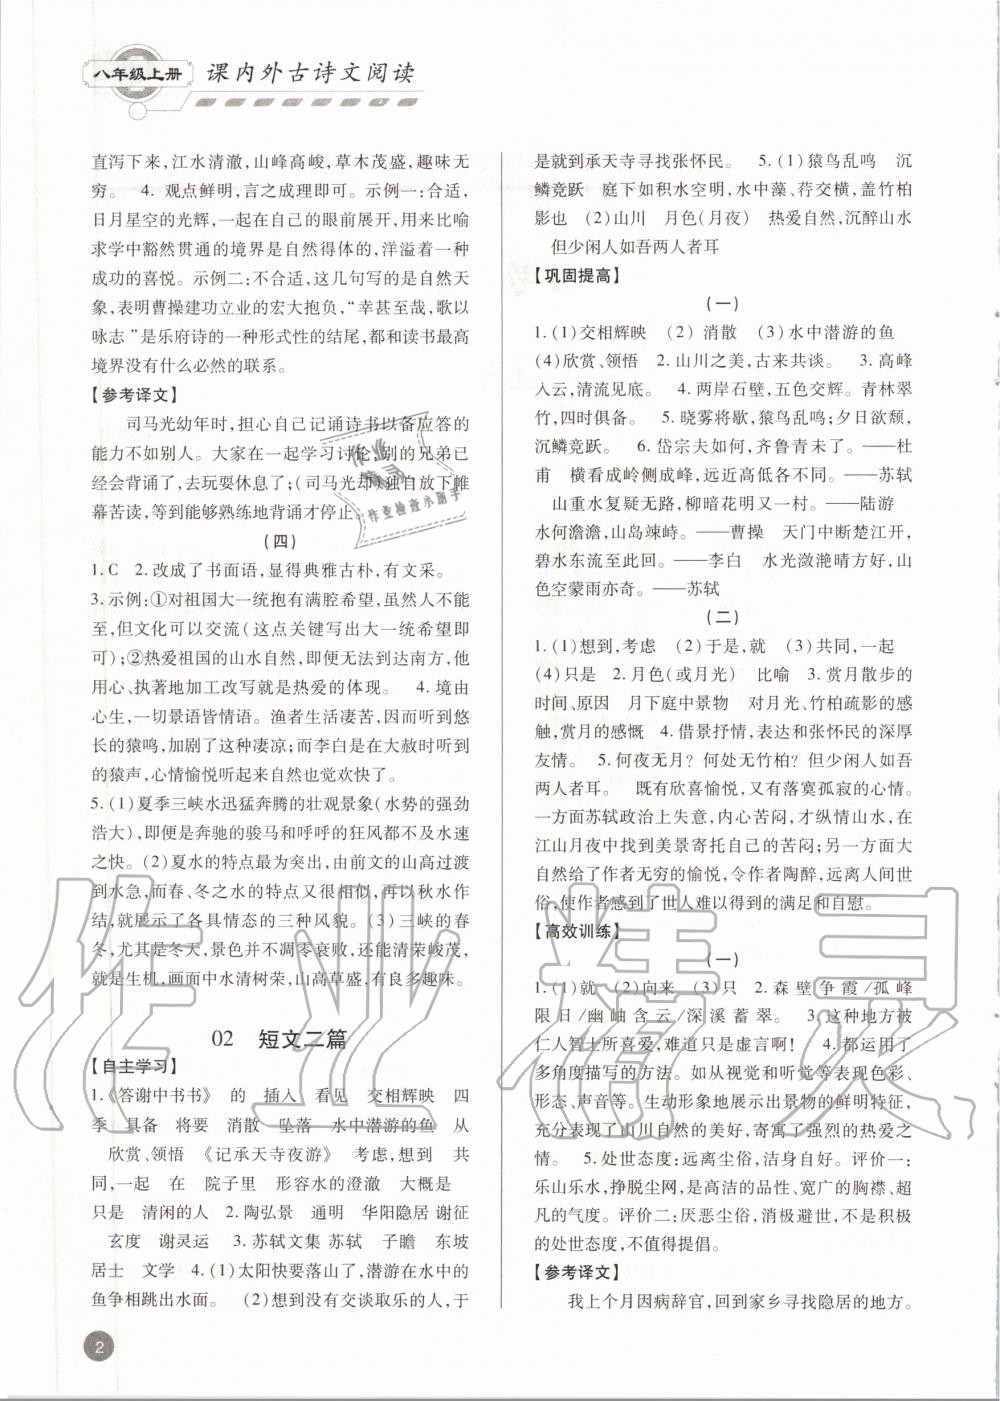 八年级上册
课内外古诗文阅读
直泻下来,江水清澈,山峰高峻,草木茂盛,趣味无
穷。 4. 观点鲜明,言之成理即可。示例一:合适,
日月星空的光辉,一起在自己的眼前展开,用来比喻
求学中豁然贯通的境界是自然得体的,洋溢着一种
成功的喜悦。示例二:不合适,这几句写的是自然景
象,表明曹操建功立业的宏大抱负,“幸甚至哉,歌以
咏志”是乐府诗的一种形式性的结尾,都和读书最高
境界没有什么必然的联系。
【参考译文】
司马光幼年时,担心自己记诵诗书以备应答的
能力不如别人。大家在一起学习讨论,别的兄弟已
经会背诵了,去玩耍休息了;(司马光却)独自放下帷
幕苦读,等到能够熟练地背诵才停止。
(四)
1.C 2.改成了书面语,显得典雅古朴,有文采。
3. 示例:①对祖国大一统抱有满腔希望,虽然人不能
至,但文化可以交流(这点关键写出大一统希望即
可);②热爱祖国的山水自然,即使无法到达南方,他
用心、执著地加工改写就是热爱的体现。 4. 境由
心生,一切景语皆情语。渔者生活凄苦,因而听到悠
长的猿鸣,加剧了这种凄凉;而李白是在大赦时听到
的猿声,心情愉悦听起来自然也觉欢快了。
5. (1)夏季三峡水迅猛奔腾的壮观景象(水势的强劲
浩大),即使是奔驰的骏马和呼呼的狂风都不及水速
之快。(2)夏水的特点最为突出,由前文的山高过渡
到水急,而春、冬之水的特点又很相似,再以秋水作
结,就展示了各具情态的三种风貌。(3)三峡的春
冬,尤其是冬天,景色并不凋零衰败,还能清荣峻茂,
就是生机,画面中水清树荣,山高草盛,有良多趣味。
02 短文二篇
【自主学习】
1.《答谢中书书》 的 插入 看见 交相辉映 四
季 具备 将要 消散 坠落 水中潜游的鱼 从
欣赏、领悟 《记承天寺夜游》 考虑,想到 共
同,一起 在 院子里 形容水的澄澈 大概是
只是 清闲的人 2. 陶弘景 通明 华阳隐居 谢征
玄度 谢灵运 3. 苏轼文集 苏轼 子瞻 东坡
居士 文学 4. (1)太阳快要落山了,潜游在水中的
鱼争相跳出水面。 (2)想到没有交谈取乐的人,于
是就到承天寺寻找张怀民。 5. (1)猿鸟乱鸣 沉
鳞竞跃 庭下如积水空明,水中藻、荇交横,盖竹柏
影也 (2)山川 月色(月夜) 热爱自然,沉醉山水
但少闲人如吾两人者耳
【巩固提高】
(一)
1. (1)交相辉映 (2) 消散 (3)水中潜游的鱼
(4)欣赏、领悟 2. 山川之美,古来共谈。 3. 高峰
入云,清流见底。 4. 两岸石壁,五色交辉。青林翠
竹,四时俱备。 5. 晓雾将歇,猿鸟乱鸣;夕日欲颓,
沉鳞竞跃。 6. 岱宗夫如何,齐鲁青未了。——杜
甫 横看成岭侧成峰,远近高低各不同。——苏轼
山重水复疑无路,柳暗花明又一村。——陆游
水何澹澹,山岛竦峙。——曹操 天门中断楚江开,
碧水东流至此回。——李白 水光潋滟晴方好,山
色空蒙雨亦奇。——苏轼
(二)
1. (1)想到,考虑 (2)于是,就 (3)共同,一起
(4)只是 2. 月色(或月光) 比喻 3. 赏月散步的
时间、原因 月下庭中景物 对月光、竹柏疏影的感
触,赏月的感慨 4. 借景抒情,表达和张怀民的深厚
友情。 5. 何夜无月? 何处无竹柏? 但少闲人如吾
两人者耳。 既有欣喜愉悦,又有落寞孤寂的心情。
一方面苏轼政治上失意,内心苦闷,才纵情山水,在
江山月夜中找到美景寄托自己的苦闷;另一方面大
自然给了作者无穷的愉悦,令作者陶醉,远离人间世
俗,使作者感到了世人难以得到的满足和自慰。
【高效训练】
(一)
1. (1)就 (2)向来 (3)只 2. 森壁争霞/孤峰
限日/幽岫含云/深溪蓄翠。 3. 这种地方被
仁人智士所喜爱,难道只是虚言吗! 4. 都运用了
多角度描写的方法。如从视觉和听觉、动态和静态、
形态、声音等。生动形象地展示出景物的鲜明特征,
充分表现了山川自然的美好,寄寓了强烈的热爱之
情。 5. 处世态度:远离尘俗,洁身自好。评价一:
乐山乐水,挣脱尘网,是高洁的品性、宽广的胸襟、超
凡的气度。评价二:厌恶尘俗,消极避世,不是积极
的处世态度,不值得提倡。
【参考译文】
我上个月因病辞官,回到家乡寻找隐居的地方。
2
作业精灵
作业检查小助手
作业精灵